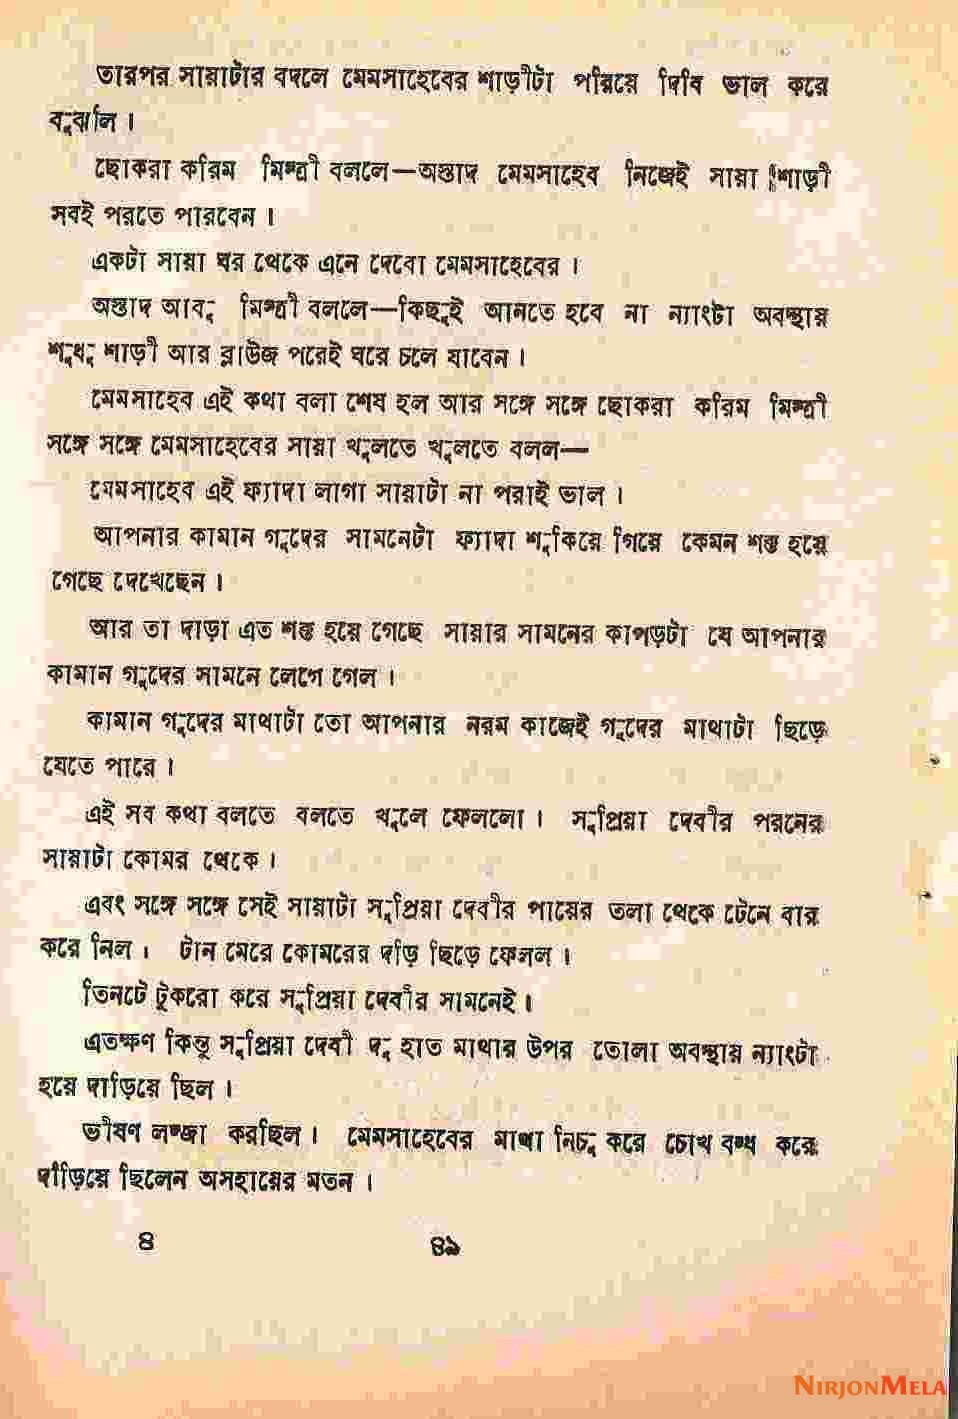 তারপর সায়াটার বদলে মেমসাহেবের শাড়ীটা পরিয়ে দিবি ভাল করে
বুঝলি ।
ছোকরা করিম মিস্ত্রী বললে—অস্তাদ মেমসাহেব নিজেই সায়া শাড়ী
সবই পরতে পারবেন ।
একটা সায়া ঘর থেকে এনে দেবো মেমসাহেবের ।
অস্তাদ আবু মিস্ত্রী বললে—কিছুই আনতে হবে না ন্যাংটা অবস্থায়
শুধু শাড়ী আর ব্লাউজ পরেই ঘরে চলে যাবেন ।
মেমসাহেব এই কথা বলা শেষ হল আর সঙ্গে সঙ্গে ছোকরা করিম মিস্ত্রী
সঙ্গে সঙ্গে মেমসাহেবের সায়া খুলতে খুলতে বলল—
মেমসাহেব এই ফ্যাদা লাগা সায়াটা না পরাই ভাল ।
আপনার কামান গুদের সামনেটা ফ্যাদা শুকিয়ে গিয়ে কেমন শক্ত হয়ে
গেছে দেখেছেন ।
আর তা দাড়া এত শক্ত হয়ে গেছে সায়ার সামনের কাপড়টা যে আপনার
কামান গুদের সামনে লেগে গেল ।
কামান গুদের মাথাটা তো আপনার নরম কাজেই গুদের মাথাটা ছিড়ে
যেতে পারে ।
এই সব কথা বলতে বলতে খুলে ফেললো । সুপ্রিয়া দেবীর পরনের
সায়াটা কোমর থেকে ।
এবং সঙ্গে সঙ্গে সেই সায়াটা সুপ্রিয়া দেবীর পায়ের তলা থেকে টেনে বার
করে নিল । টান মেরে কোমরের দড়ি ছিড়ে ফেলল ।
তিনটে টুকরো করে সুপ্রিয়া দেবীর সামনেই ।
এতক্ষণ কিন্তু সুপ্রিয়া দেবী দু হাত মাথার উপর তোলা অবস্থায় ন্যাংটা
হয়ে দাড়িয়ে ছিল ।
ভীষণ লজ্জা করছিল । মেমসাহেবের মাথা নিচু করে চোখ বন্ধ করে
দাঁড়িয়ে ছিলেন অসহায়ের মতন ।
৪ ৪৯
NIRJONMELA